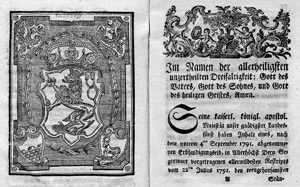 Im Namen der allerheiligsten
unzertheilten Dreifaltigkeit: Gott des
Vaters, Gott des Sohnes, und Gott
des heiligen Geistes, Amen.
Seine kaiserl. königl. apostol.
Majestät unser gnädigster Landes-
fürst haben Inhalt eines, nach
dem unterm 4ten September 1791. abgenommenen
Erbhuldigungseid, in Allerhöchst Dero
vorgetragenen allerwildesten Rescripts
vom 22ten Julius 1791. den
A